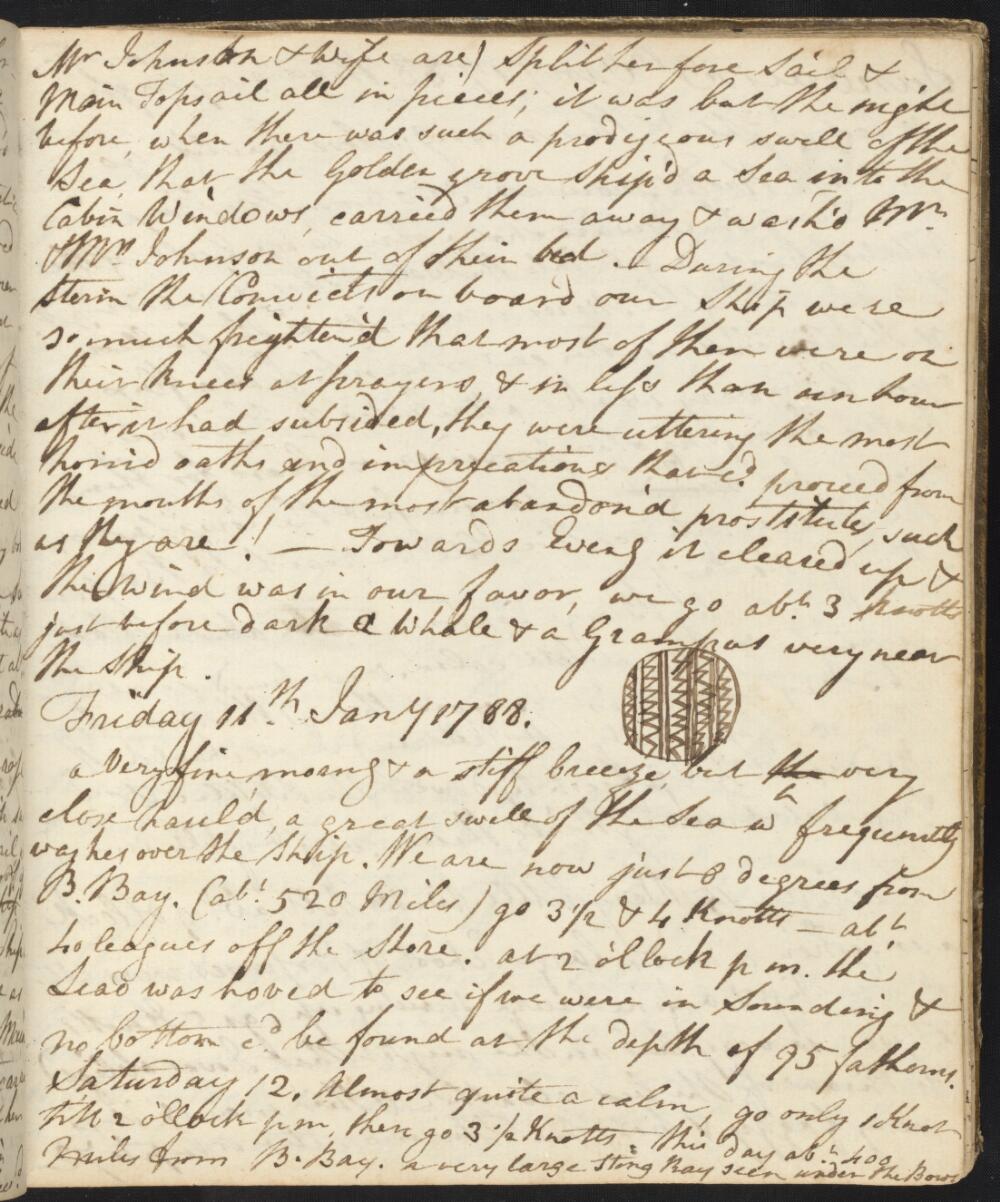 Mr Johnston & Wife are) Split her fore Sail &
Main Topsail all in pieces; it was but the night
before, when there was such a prodigeous swell of the
Sea, that the Golden grove ship'd a Sea into the
Cabin Windows, carried them away & wash'd Mr.
& Mrs Johnson out of their bed. During the
Storm the Convicts on board our Ship were
so much frighten'd that most of them were on
their knees at prayers, & in less than an hour
after it had subsided, they were uttering the most
horrid oaths and imprecations that cd. proceed from
the mouths of the most abandon'd prostitutes, such
as they are! — Towards Eveng it cleared up &
the Wind was in our favor, we go abt. 3 Knotts
just before dark a Whale & a Grampus very near
the Ship.
Friday 11th. Jany 1788.
a Very fine morng & a stiff breeze, but the very
close haul'd, a great swell of the Sea wh frequently
washes over the Ship. We are now just 8 degrees from
B. Bay. (abt. 520 Miles) go 3 1/2 & 4 Knotts — abt.
40 leagues off the Shore. at 2 o'Clock p m. the
Lead was hoved to see if we were in Sounding &
no bottom cd. be found at the depth of 95 fathoms.
Saturday 12. Almost quite a calm, go only 1 Knot
till 2 o'Clock p m, then go 3 1/2 Knotts. this day abt. 400
Miles from B. Bay. a very large Sting Ray seen under the Bows